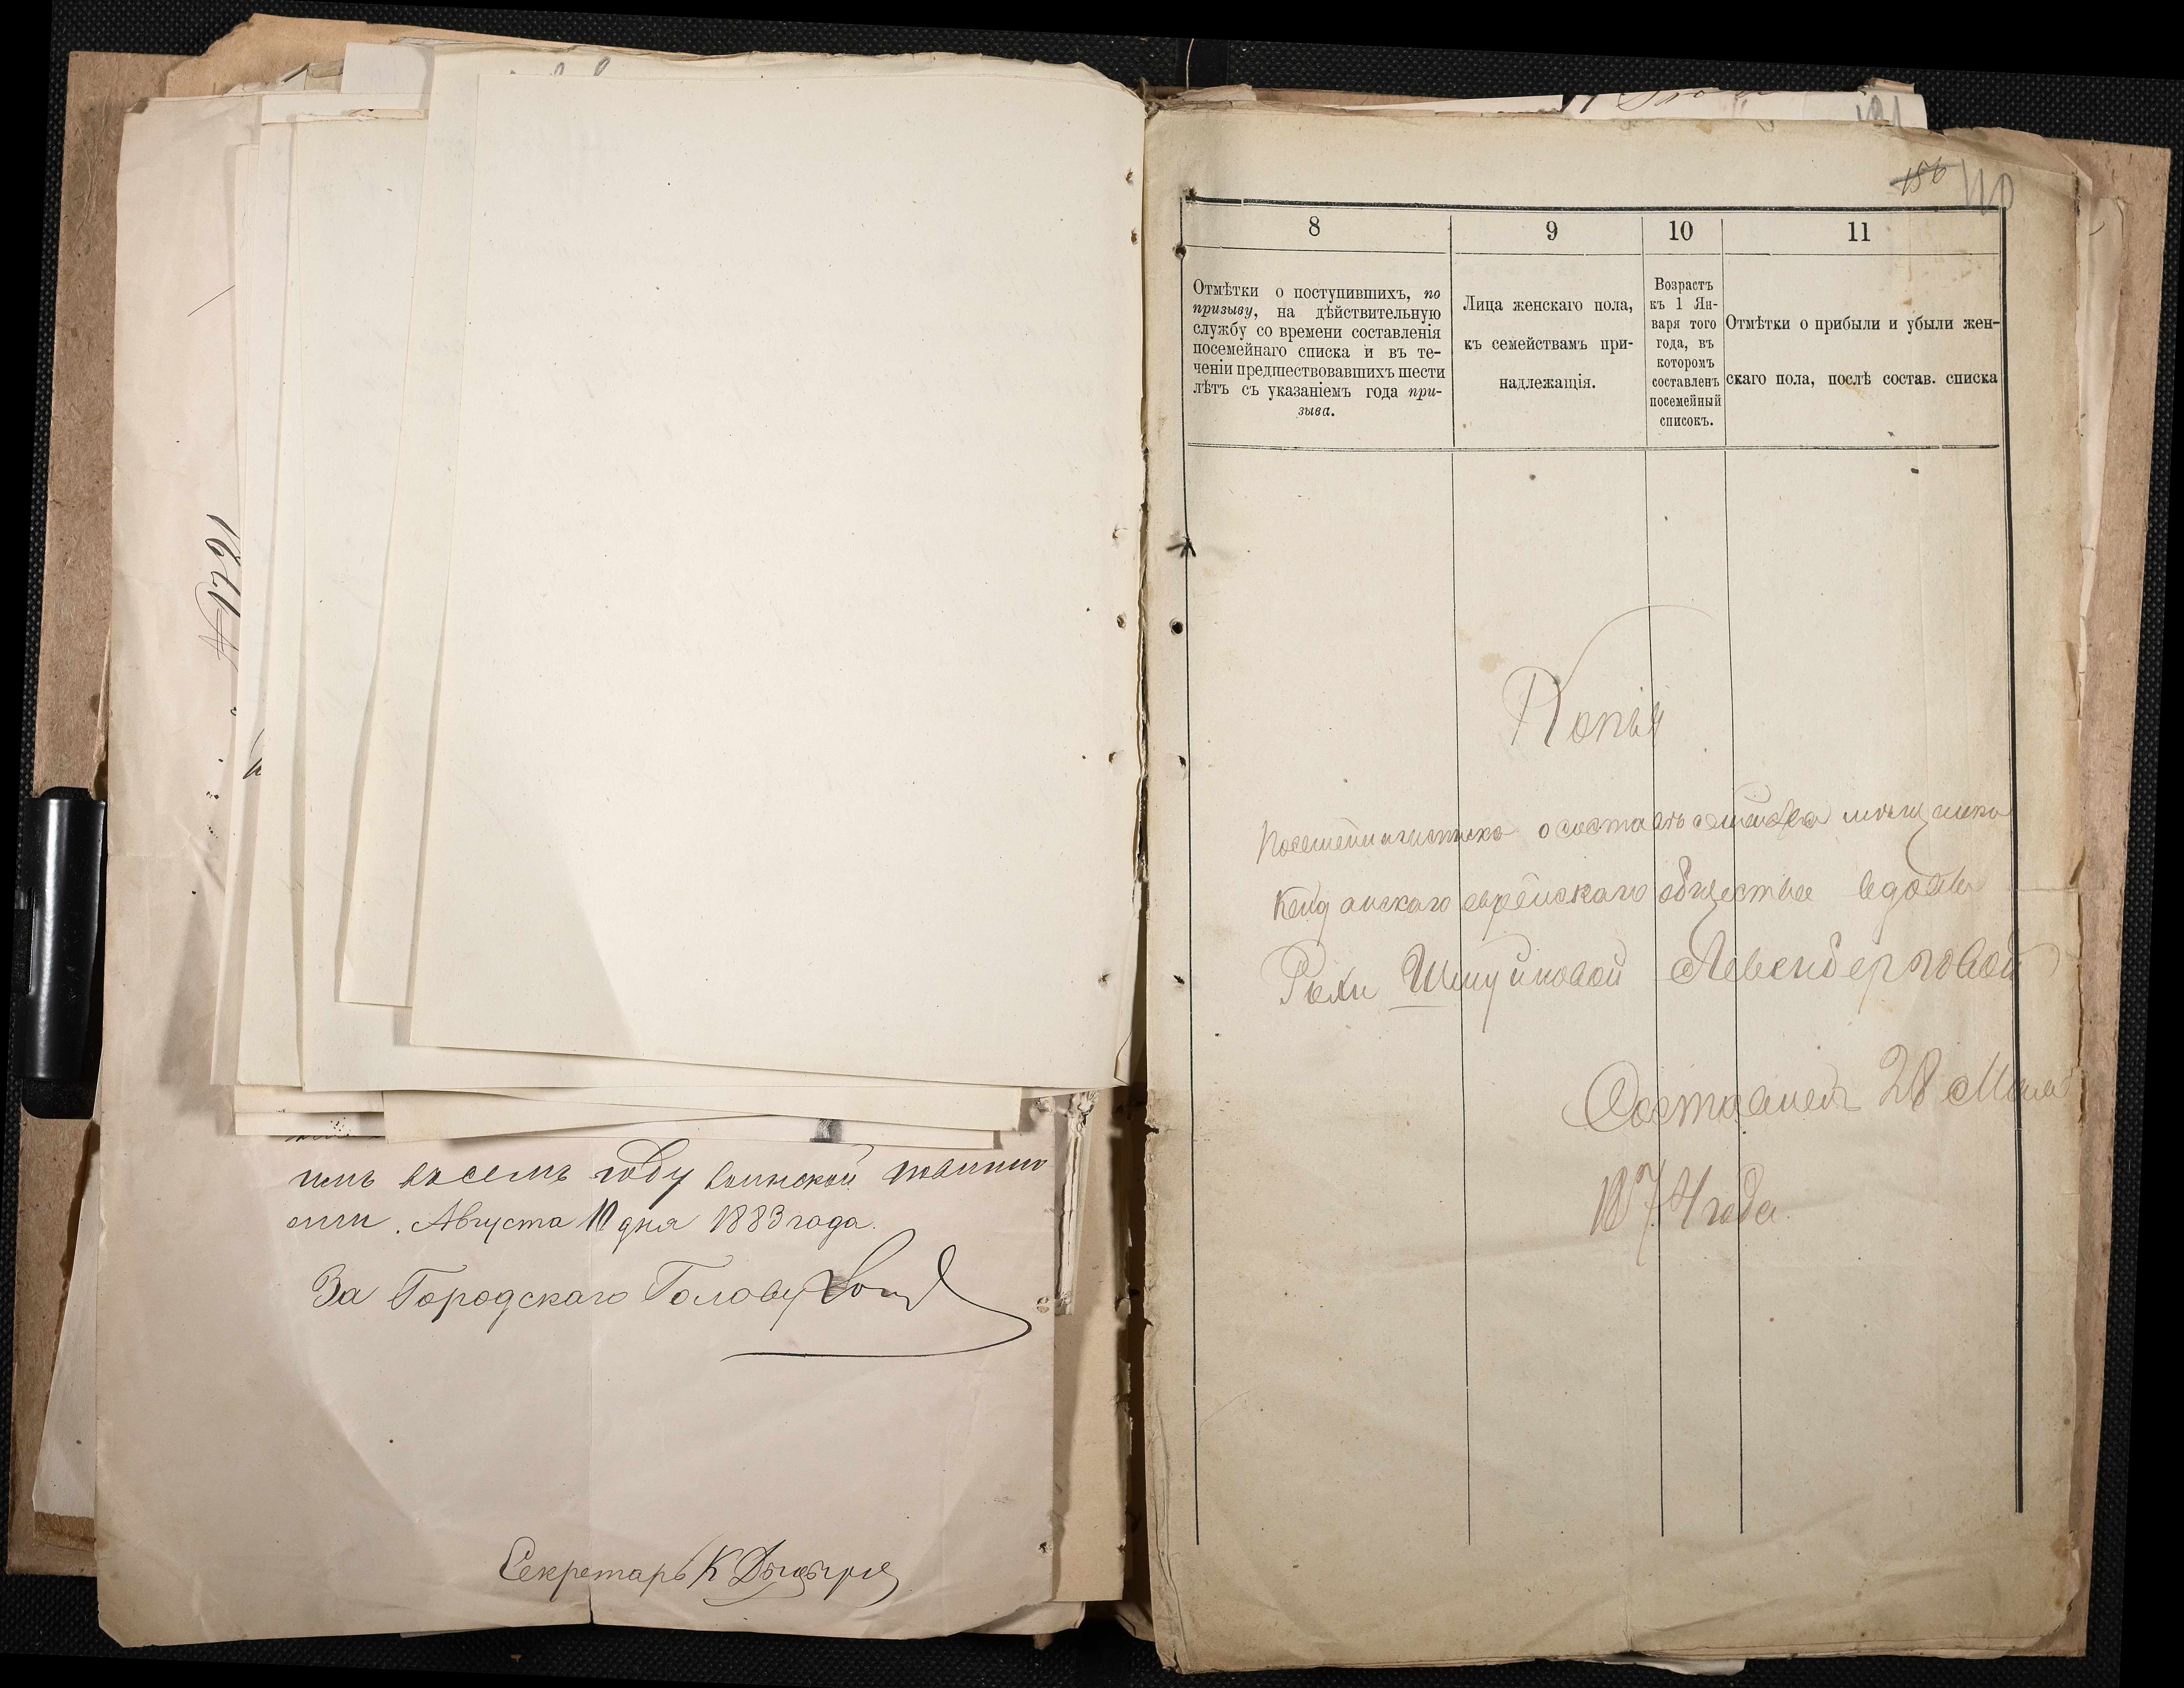 № 1721
имъ в семъ году воинской повинно
сти. Августа 10 дня 1883 года.
За Городскаго Голову
Секретарь К
156 110
8
Отмѣтки о поступившихъ, по
призыву, на дѣйствительную
службу со времени составленія
посемейнаго списка и въ те-
ченіи предшествовавшихъ шести
лѣтъ съ указаніемъ года при-
зыва.
9
Лица женскаго пола,
къ семействамъ при-
надлежащія.
10
Возрастъ
къ 1 Ян-
варя того
года, въ
которомъ
составленъ
посемейный
списокъ.
11
Отмѣтки о прибыли и убыли жен-
скаго пола, послѣ состав. списка
Копія
о составѣ семейства мѣщанина
Кейданскаго еврейскаго общества вдовы
Рохи Шмуйловой Левенберговой
Составленъ 28 Мая
1874 года